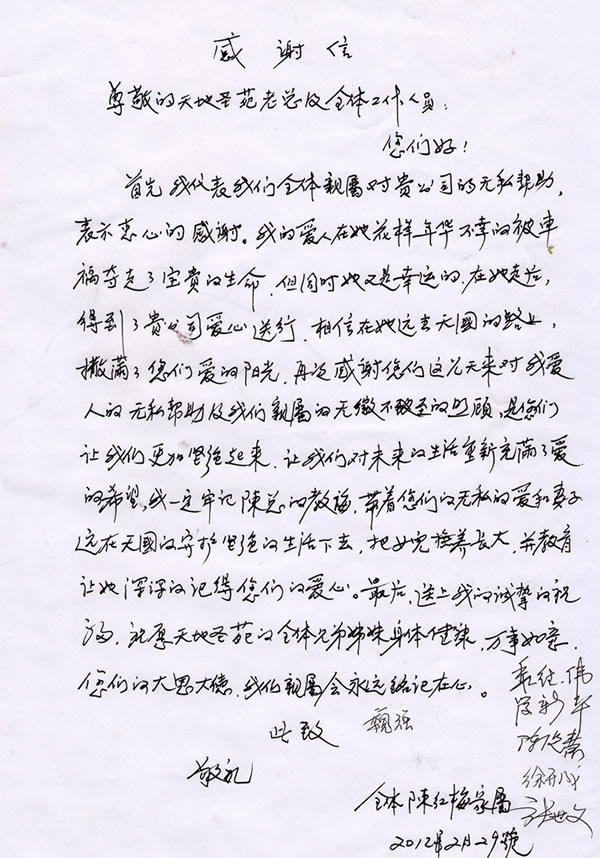 感谢信
尊敬的天地圣苑老总及全体工作人员:
您们好!
首先我代表我们全体親屬对貴公司的无私帮助,
表示忠心的感谢。我的爱人在她花样年华不幸的被車
祸夺走了宝贵的生命,但同时她又是幸运的,在她走后,
得到了貴公司爱心送行,相信在她远去天國的路上,
撒满了您们爱的阳光,再次感谢您们这几天来对我爱
人的无私帮助及我们親屬的无微不致至的照顾,是您们
让我们更加坚强起来,让我们对未来的生活重新充满了爱
的希望,我一定牢记陳总的教诲,带着您们的无私的爱和妻子
远在天國的守护坚强的生活下去,把女儿撫养长大,并教育
让她深深的记得您们的爱心。最后,送上我的诚挚的祝
福,祝愿天地圣苑的全体兄弟姊妹身体健康,万事如意,
您们的大恩大德,我们親屬会永远铭记在心。
此致
敬礼
全体陳红梅家屬
2012年2月29號